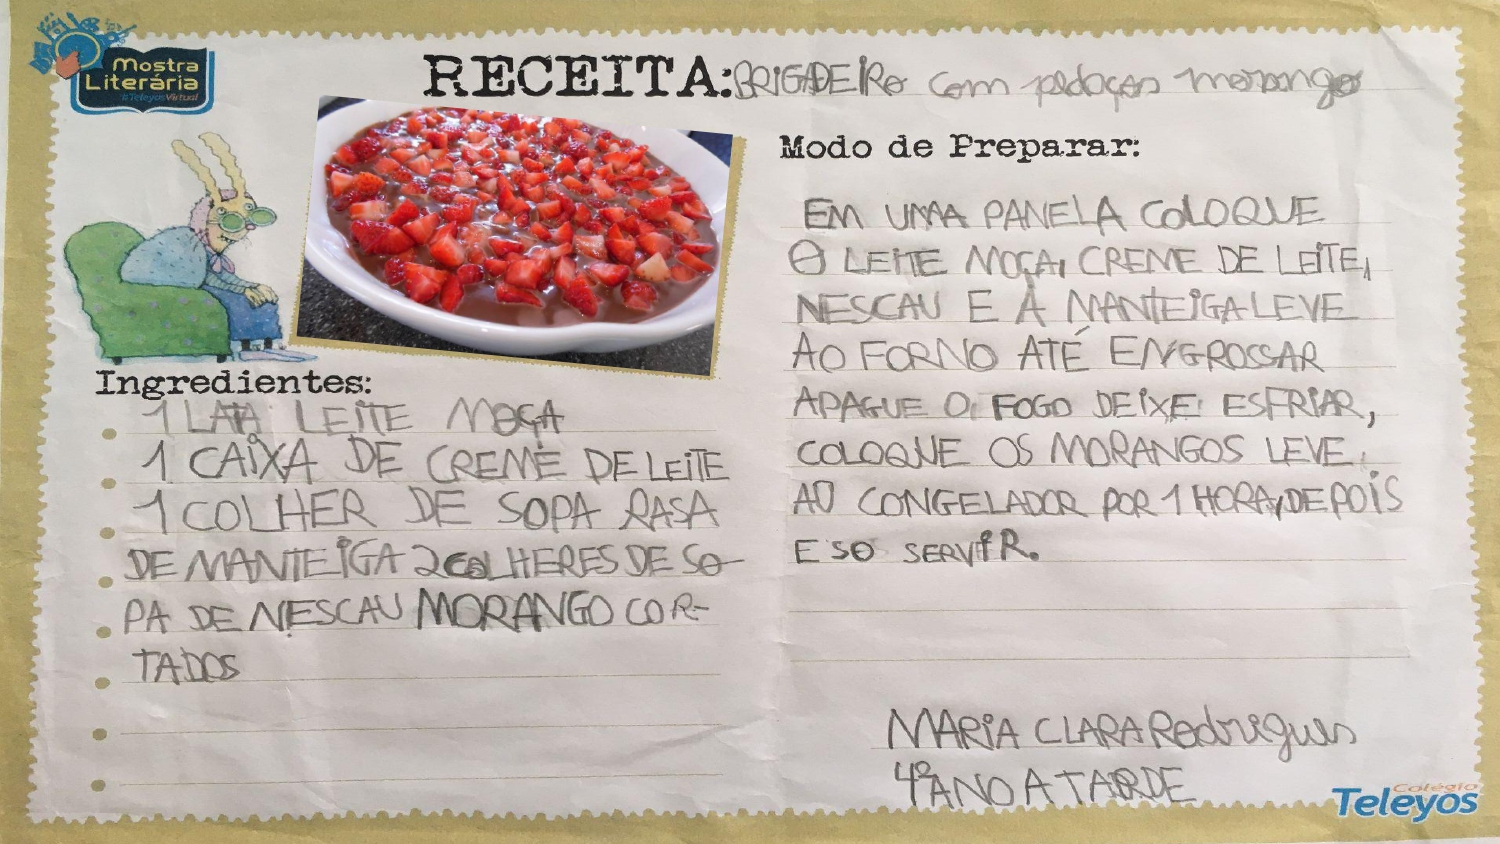 Mostra
Literária
#TeleyosVirtual
RECEITA: BRIGADEIRO com pedaços morangos
Ingredientes:
1 LATA LEITE MOÇA
1 CAIXA DE CREME DE LEITE
1 COLHER DE SOPA RASA
DE MANTEIGA 2 COLHERES DE SO-
PA DE NESCAU MORANGO COR-
TADOS
Modo de Preparar:
EM UMA PANELA COLOQUE
O LEITE MOÇA, CREME DE LEITE,
NESCAU E A MANTEIGA LEVE
AO FORNO ATÉ ENGROSSAR
APAGUE O FOGO DEIXE ESFRIAR,
COLOQUE OS MORANGOS LEVE
AO CONGELADOR POR 1 HORA, DEPOIS
E SO SERVIR.
MARIA CLARA Rodrigues
4º ANO A TARDE
Colégio
Teleyos